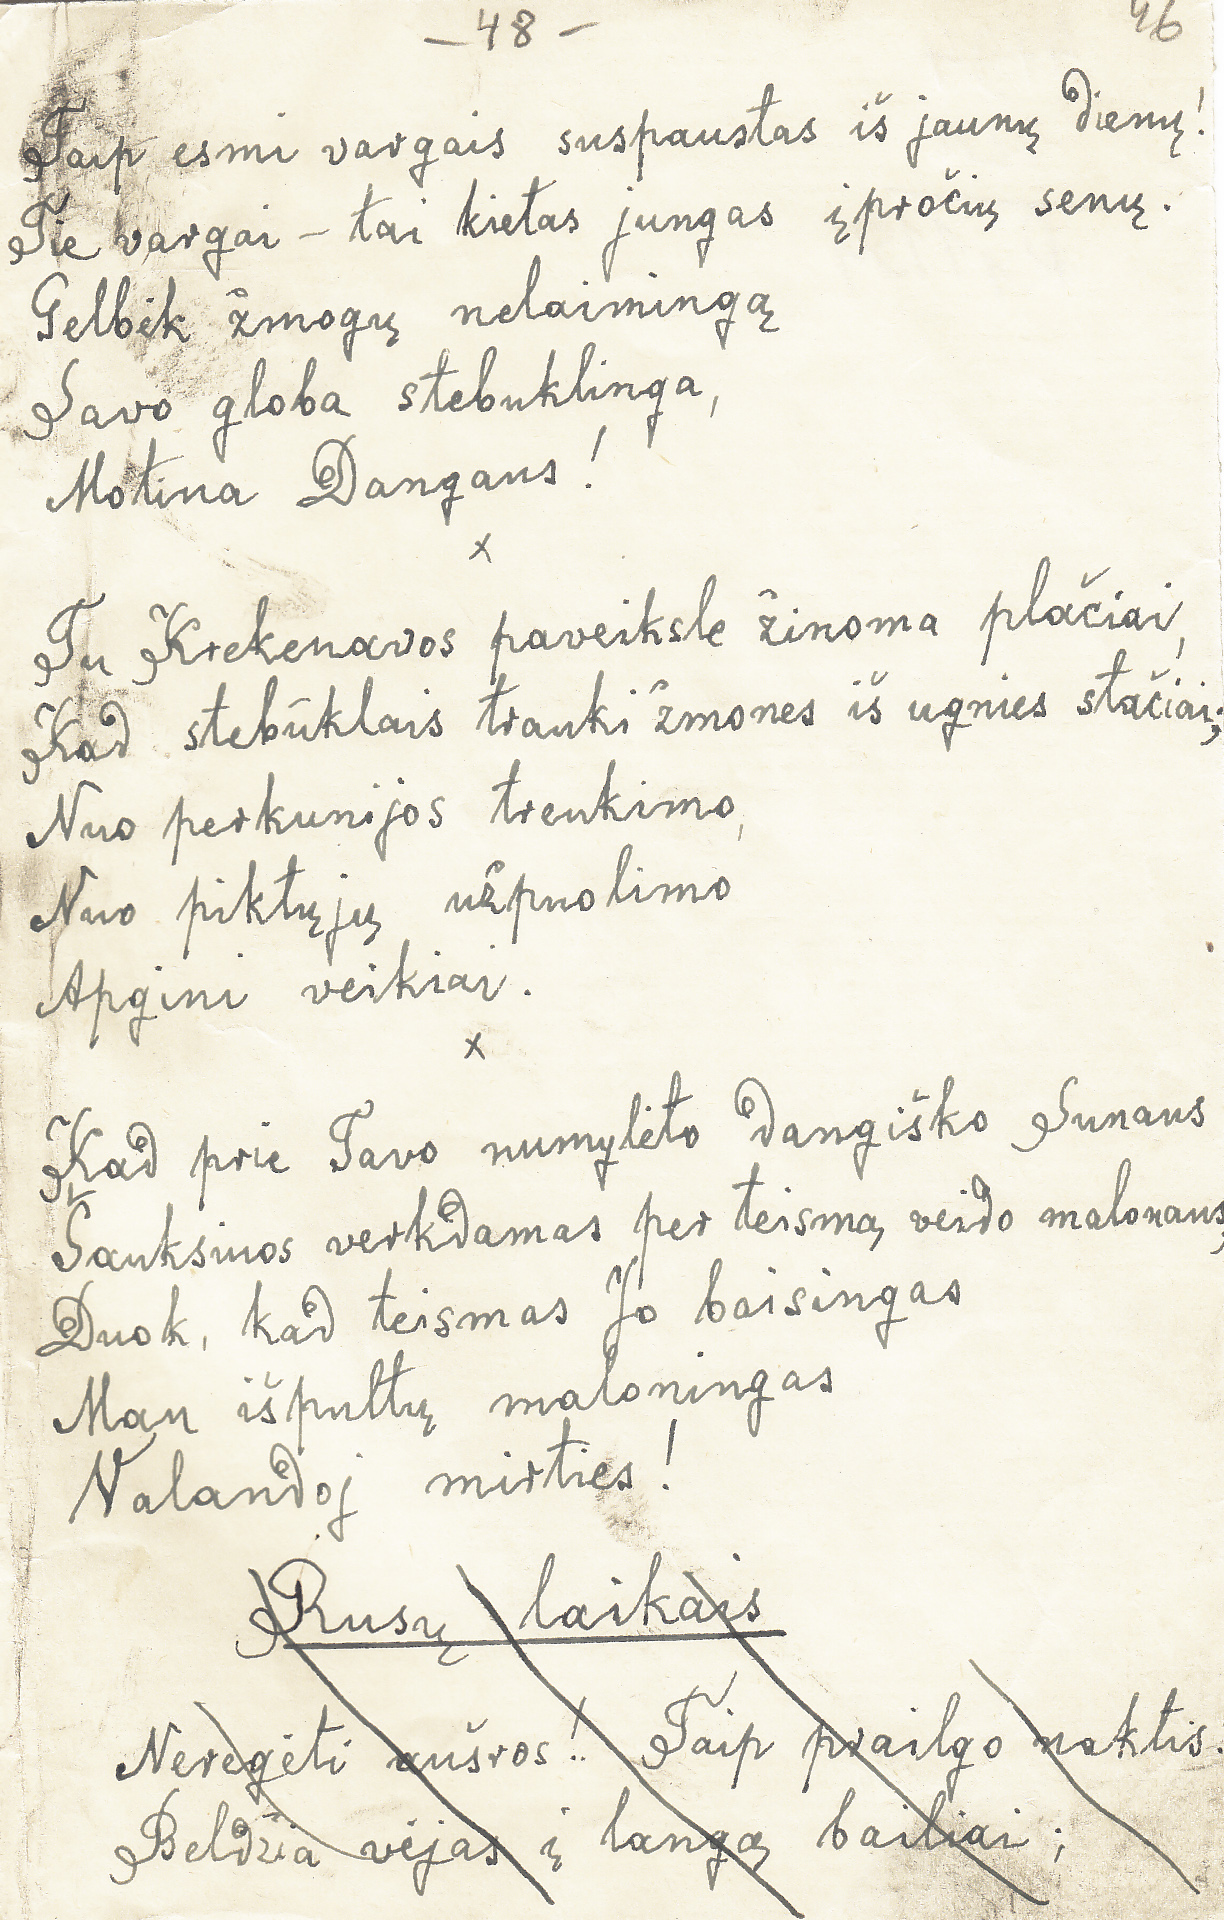 – 48 –
46
Taip esmi vargais suspaustas iš jaunų dienų!
Tie vargai – tai kietas jungas įpročių senų.
Gelbėk žmogų nelaimingą
Savo globa stebuklinga,
Motina Dangaus!
x
Tu Krekenavos paveiksle žinoma plačiai,
Kad stebūklais trauki žmones iš ugnies stačiai;
Nuo perkunijos trenkimo,
Nuo piktųjų užpuolimo
Apgini veikiai.
x
Kad prie Tavo numylėto dangiško Sunaus
Šauksiuos verkdamas per teismą veido malonaus,
Duok, kad teismas Jo baisingas
Man išpultų maloningas
Valandoj mirties!
Rusų laikais
Neregėti aušros! Taip prailgo naktis.
Beldžia vėjas į langą bailiai;